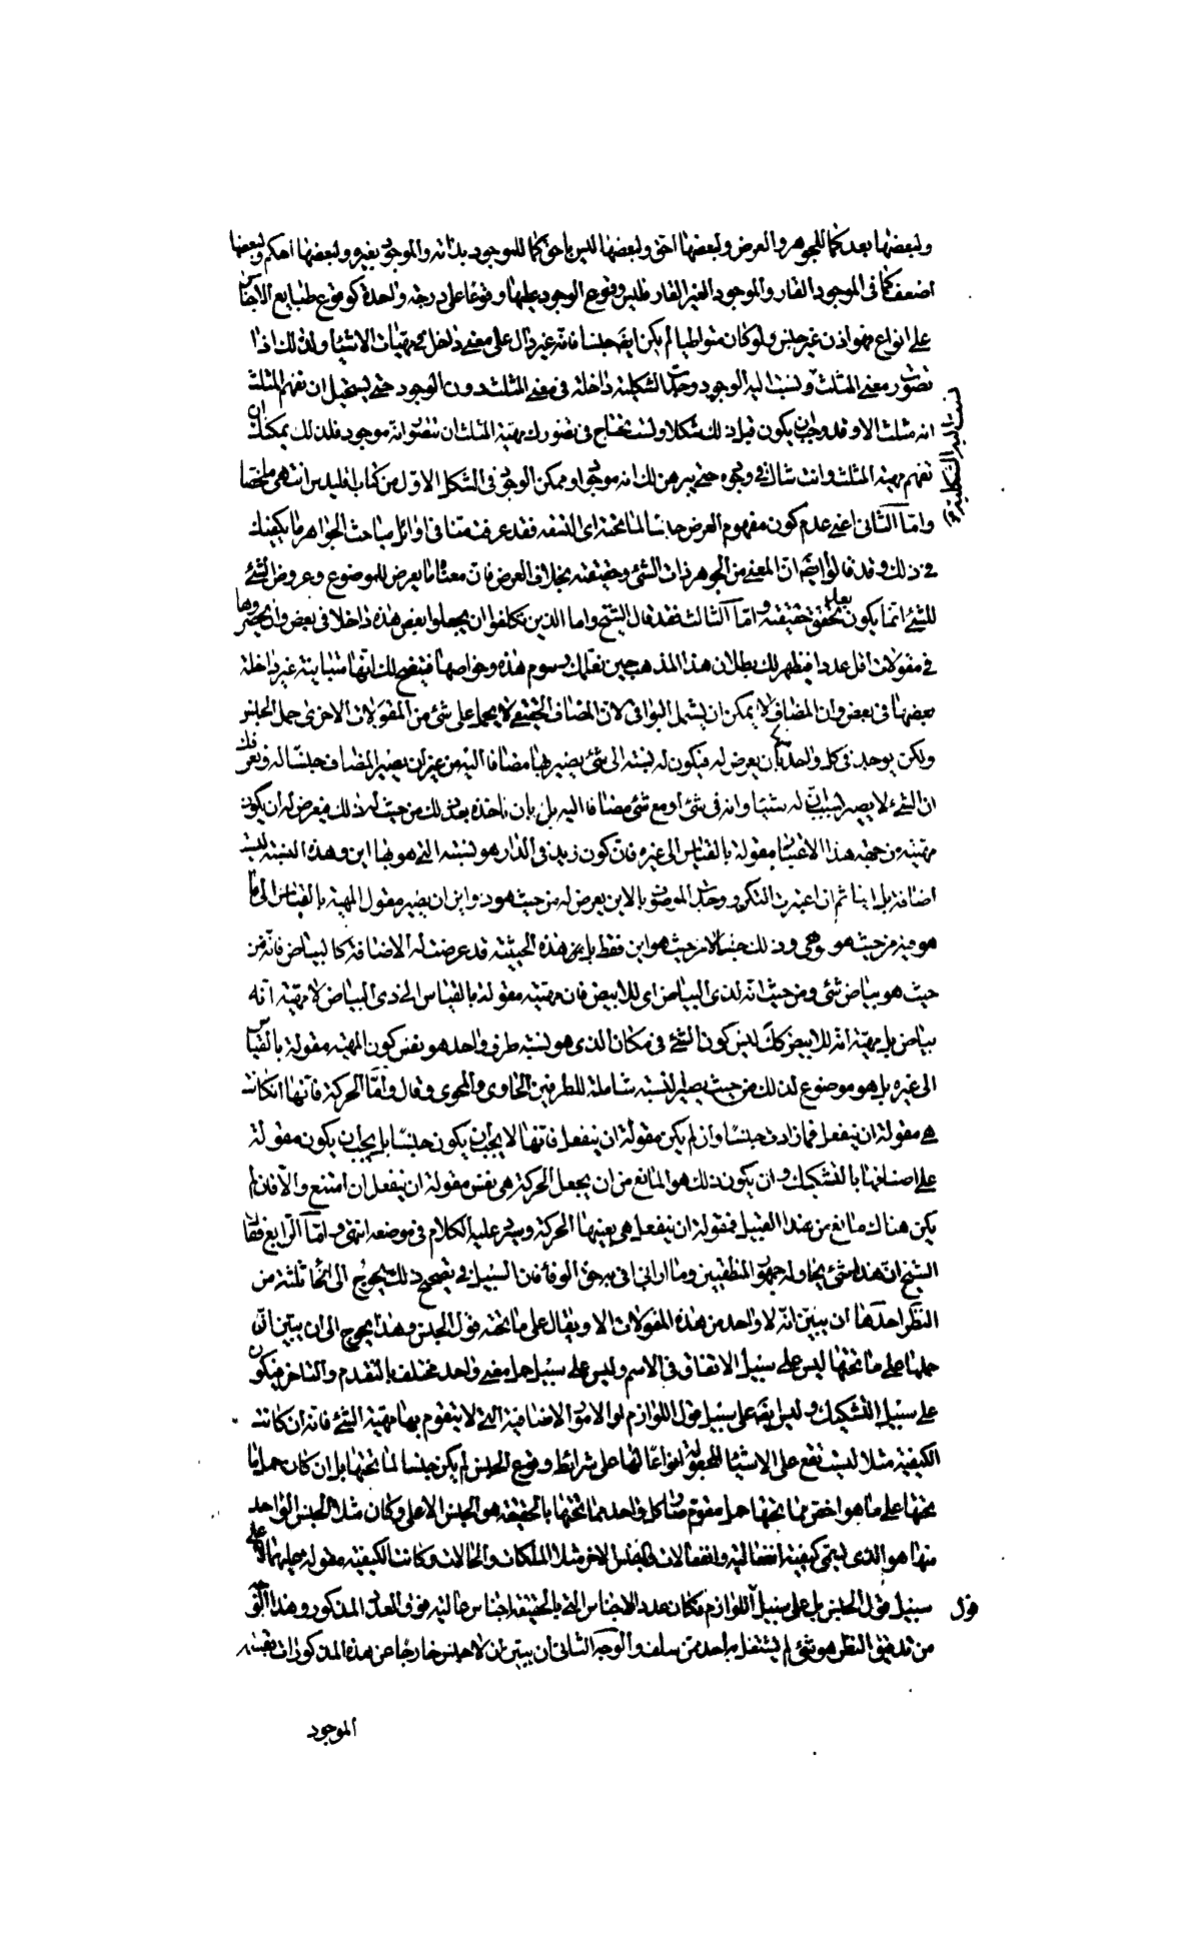 ولبعضها بعد كما للجوهر والعرض ولبعضها احق ولبعضها ليس باحق كما للموجود بذاته والموجود بغيره ولبعضها احكم ولبعضها
اضعف كما فى الموجود القار والموجود الغير القار فليس وقوع الوجود عليها وقوعا على درجة واحدة كوقوع طبايع الاجناس
على انواع فهو اذن غير جنس ولو كان متواطيا لم يكن ايضا جنسا فانه غير دال على معنى داخل فى مهيات الاشياء ولذلك اذا
تصورت معنى المثلث ونسبت اليه الوجود وجدت الشكلية داخلة فى معنى المثلث دون الوجود حتى يستحيل ان تفهم المثلث
نسبت اليه الشكلية و
انه مثلث الا وقد وجب ان يكون قبل ذلك شكلا ولست تحتاج فى تصورك مهية المثلث ان تتصور انه موجود فلذلك يمكنك ان
تفهم مهية المثلث وانت شاك فى وجوده حتى يبرهن لك انه موجود او ممكن الوجود فى الشكل الاول من كتاب اقليدس انتهى ملخصا
واما الثانى اعنى عدم كون مفهوم العرض جنسا لما تحته اى التسعة فقد عرفت منا فى اوائل مباحث الجواهر ما يكفيك
فى ذلك وقد قالوا ايضا ان المعنى من الجوهر ذات الشئ وحقيقته بخلاف العرض فان معناه ما يعرض للموضوع وعروض الشئ
للشئ انما يكون بعد تحقق حقيقته واما الثالث فقد قال الشيخ واما الذين تكلفوا ان يجعلوا بعض هذه داخلا فى بعض وان يحصروها
فى مقولات اقل عددا فيظهر لك بطلان هذا المذهب حين نعلمك رسوم هذه وخواصها فيتضح لك انها متباينة غير داخلة
بعضها فى بعض وان المضاف لا يمكن ان يشمل البواقى لان المضاف الحقيقى لا يحمل على شئ من المقولات الاخرى حمل الجنس
ولكن يوجد فى كل واحد بان يعرض له فيكون له نسبة الى شئ يصير بها مضافا اليه من غير ان يصير المضاف جنسا له وتعرف
ان الشئ لا يصير بسبب ان له شيئا وانه فى شئ او مع شئ مضافا اليه بل بان ناخذه بعد ذلك من حيث له ذلك فيعرض له ان يكون
مهيته من جهة هذا الاعتبار مقولة بالقياس الى غيره فان كون زيد فى الدار هو نسبته التى هو بها اين وهذه النسبة ليست
اضافة بل اينا ثم ان اعتبرت التكرير وجدت الموصوف بالاين يعرض له من حيث هو ذو اين ان يصير مقول المهية بالقياس الى ما
هو فيه من حيث هو وذلك حيث لا من حيث هو اين فقط بل من هذه الحيثية قد عرضت له الاضافة كالبياض فانه من
حيث هو بياض شئ ومن حيث انه لذى البياض اى للابيض فان مهيته مقولة بالقياس الى ذى البياض لا مهية انه
بياض بل مهية انه للابيض كك ليس كون الشئ فى مكان الذى هو نسبة طرف واحد هو نفس كون المهية مقولة بالقياس
الى غيره بل هو موضوع لذلك من حيث يصير النسبة شاملة للطرفين الحاوى والمحوى وقال واما الحركة فانها ان كانت
هى مقولة ان ينفعل فما زادت جنسا وان لم يكن مقولة ان ينفعل فانها لا يجب ان يكون جنسا بل يجب ان يكون مقولة
على اصنافها بالتشكيك وان يكون ذلك هو المانع من ان يجعل الحركة هى نفس مقولة ان ينفعل ان امتنع والا فان لم
يكن هناك مانع من هذا القبيل فمقولة ان ينفعل هى بعينها الحركة وسيرد عليك الكلام فى موضعه انتهى واما الرابع فقال
الشيخ ان هذا شئ يحاوله جمهور المنطقيين وما ارانى افى به حق الوفاء فان السبيل فى تصحيح ذلك يحوج الى انحاء ثلثة من
النظر احدها ان يبين انه لا واحد من هذه المقولات الا ويقال على ما تحته قول الجنس وهذا يحوج الى ان يبين ان
حملها على ما تحتها ليس على سبيل الاتفاق فى الاسم وليس على سبيل حمل معنى واحد مختلف بالتقدم والتاخر فيكون
على سبيل التشكيك وليس ايضا على سبيل قول اللوازم والامور الاضافية التى لا يتقوم بها مهية الشئ فانه ان كانت
الكيفية مثلا ليست تقع على الاشياء المجعولة انواعا لها على شرائط وقوع الجنس لم يكن جنسا لما تحتها بل ان كان حملها
تحتها على ما هو اخص مما تحتها حمل مقوم وكان كل واحد مما تحتها بالحقيقة هو الجنس الاعلى وكان مثلا الجنس الواحد
منها هو الذى يسمى كيفية انفعالية وانفعالات والجنس الاخر مثلا الملكات والحالات وكانت الكيفية مقولة عليها لا على
سبيل قول الجنس بل على سبيل اللوازم فكان عدد الاجناس التى بالحقيقة اجناس عالية فوق العدد المذكور وهذا الوجه
قول
من تدقيق النظر هو شئ لم يشتغل به احد ممن سلف والوجه الثانى ان يبين ان لا جنس خارجا عن هذه المذكورات بقسمة
الموجود